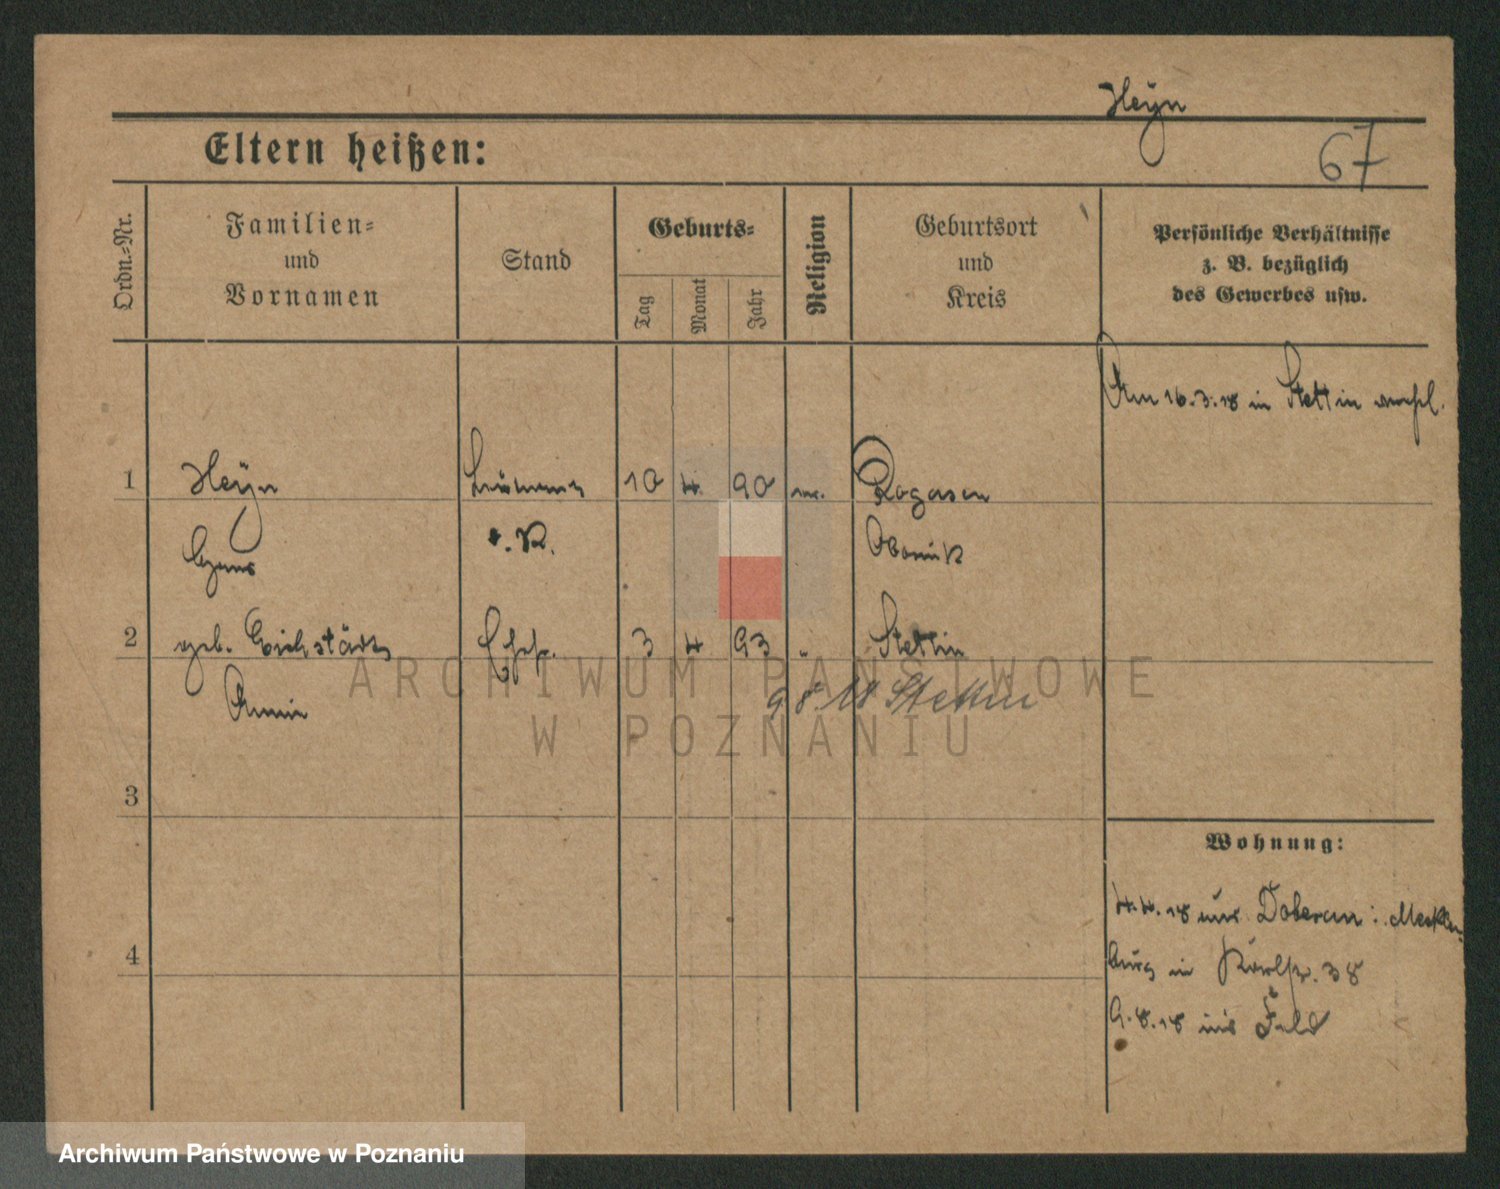 Heyn
67
Eltern heißen:
Ordn.-Nr.
Familien-
und
Vornamen
Stand
Geburts-
Tag
Monat
Jahr
Religion
Geburtsort
und
Kreis
Persönliche Verhältnisse
z. B. bezüglich
des Gewerbes usw.
Am 16.3.18 in Stettin
1 Heyn 10 4 90 Rogasen
d. R. Obornik
2 geb. Eichstädt Ehefr. 3 4 93 " Stettin
9 8 18 Stettin
3
Wohnung:
4.4.18 aus Doberan: Mecklen-
burg in 38
4
9.8.18 ins Feld
ARCHIWUM PAŃSTWOWE
W POZNANIU
Archiwum Państwowe w Poznaniu